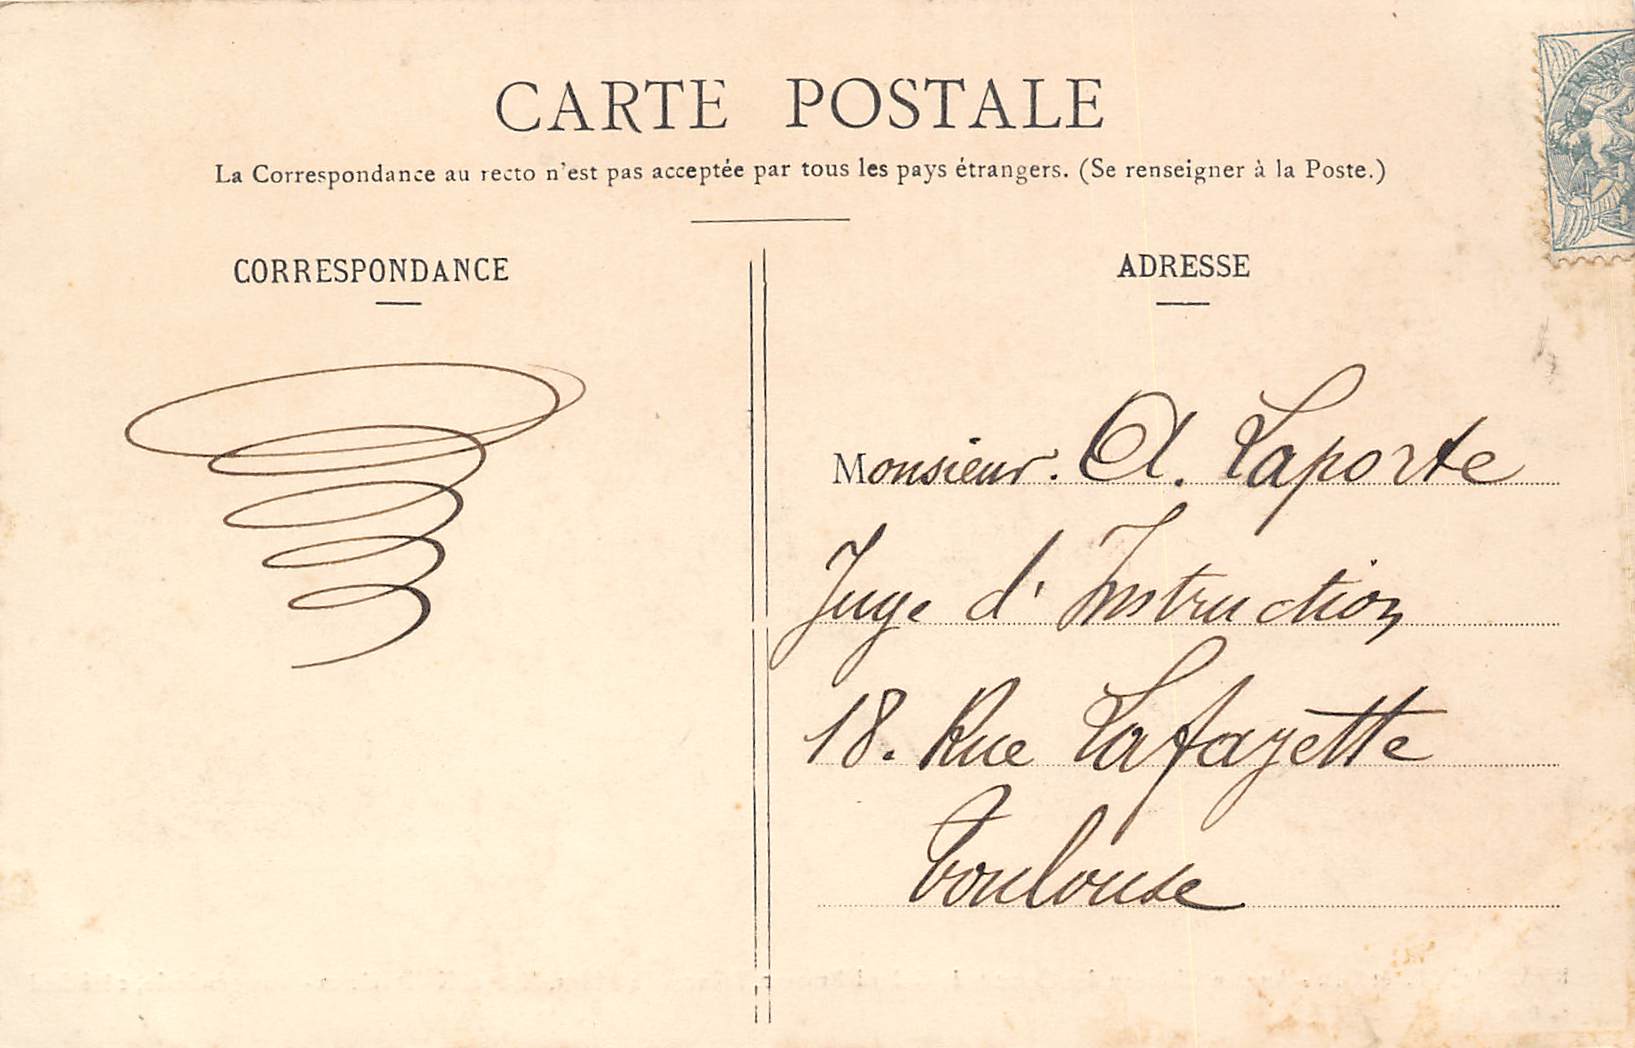 CARTE POSTALE
La Correspondance au recto n'est pas acceptée par tous les pays étrangers. (Se renseigner à la Poste.)
CORRESPONDANCE
ADRESSE
Monsieur. A. Laporte
Juge d'Instruction
18. Rue Lafayette
Toulouse